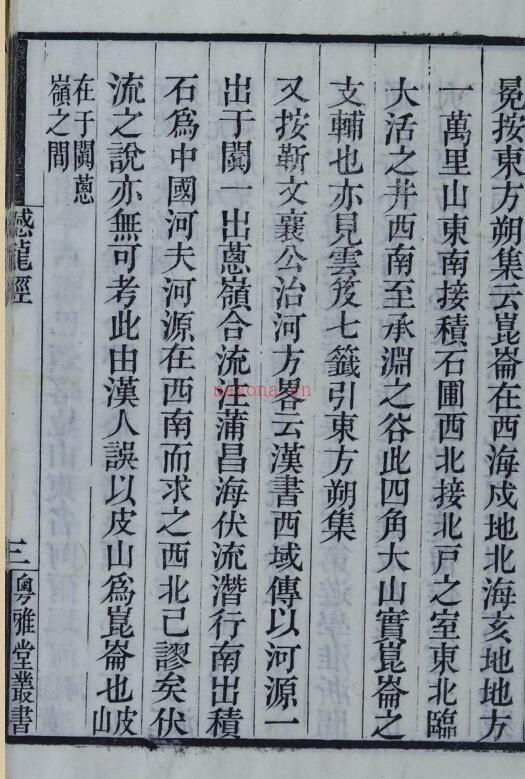 冕按東方朔集云崑崙在西海戍地北海亥地地方
一萬里山東南接積石圃西北接北戸之室東北臨
大活之井西南至承淵之谷此四角大山實崑崙之
支輔也亦見雲笈七籤引東方朔集
又按靳文襄公治河方畧云漢書西域傳以河源一
出于闐一出蔥嶺合流注蒲昌海伏流潛行南出積
石爲中國河夫河源在西南而求之西北已謬矣伏
流之說亦無可考此由漢人誤以皮山爲崑崙也皮山
在于闐蔥
嶺之間
撼龍經
三
粵雅堂叢書
nayona.cn